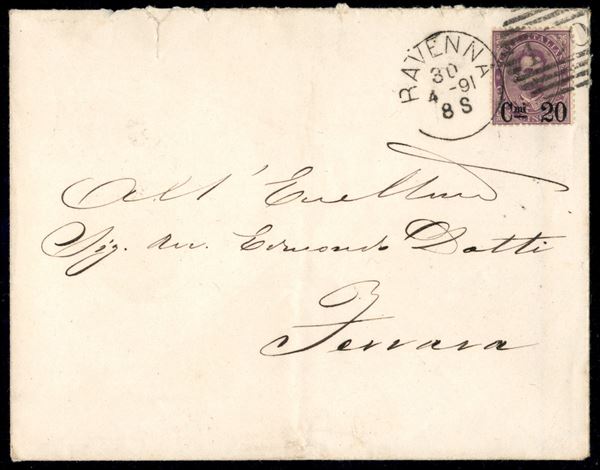 RAVENNA
30
4 -91
8 S
Cmi 20
All'
Sig. Avv. Edmondo Dotti
Ferrara